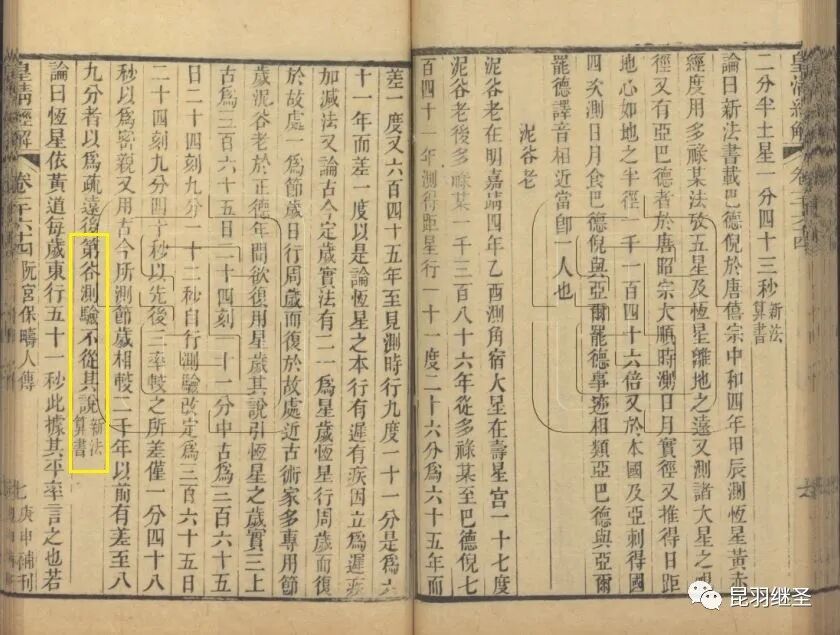 皇清經解
二分半土星一分四十三秒新法算書
論曰新法書載巴德倪於唐僖宗中和四年甲辰測恆星黃赤
經度用多祿某法攷五星及恆星離地之遠又測諸大星之視
徑又有亞巴德者於唐昭宗大順時測日月實徑又推得日距
地心如地之半徑一千一百四十六倍又於本國及亞刺得國
四次測日月食巴德倪與亞爾罷德事迹相類亞巴德與亞爾
罷德譯音相近當卽一人也
泥谷老
泥谷老在明嘉靖四年乙酉測角宿大星在壽星宮一十七度
泥谷老後多祿某一千三百八十六年從多祿某至巴德倪七
百四十一年測得距星行一十一度二十六分爲六十五年而
差一度又六百四十五年至見測時行九度一十一分是爲七
十一年而差一度以是論恆星之本行有遲有疾因立爲遲疾
加減法又論古今定歲實法有二一爲星歲恆星行周歲而復
於故處一爲節歲日行周歲而復於故處近古術家多專用節
歲泥谷老於正德年間欲復用星歲其說引恆星之歲實三上
古爲三百六十五日二十四刻一十一分中古爲三百六十五
日二十四刻九分一十二秒自行測驗改定爲三百六十五日
二十四刻九分四十秒以先後三率較之所差僅一分四十八
秒以爲密親又用古今所測節歲相較二千年以前有差至八
九分者以爲疏遠後第谷測驗不從其說新法算書
論曰恆星依黃道每歲東行五十一秒此據其平率言之也若
皇清經解 卷千六十四 阮宮保疇人傳 七 庚申補刊
昆羽继圣